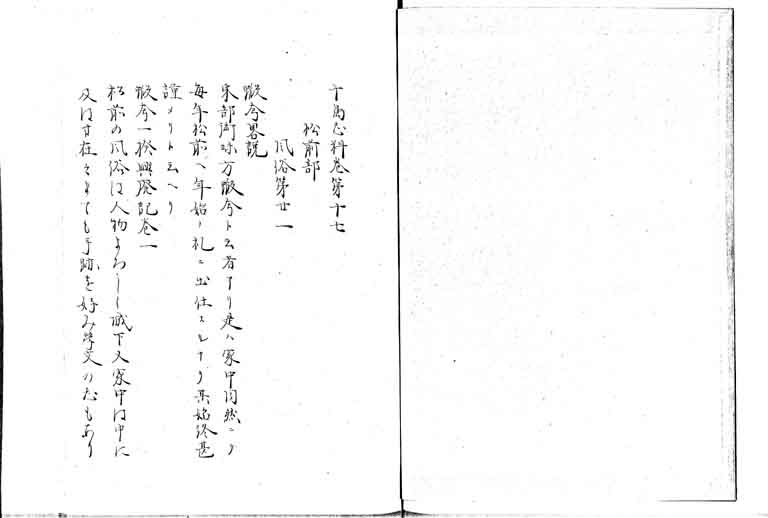 千島志料巻第十七
松前部
風俗第廿一
蝦夷畧説
東部 方蝦夷ト云者アリ是ハ家中同然ニ
毎年松前ヘ年始ノ礼ニ出仕スルナリ其始終甚
謹メリト云ヘリ
蝦夷一揆興廃記巻一
松前の風俗は人物よろしく城下又家中は中に
及はす在々まても手跡を好み学文の志もあり